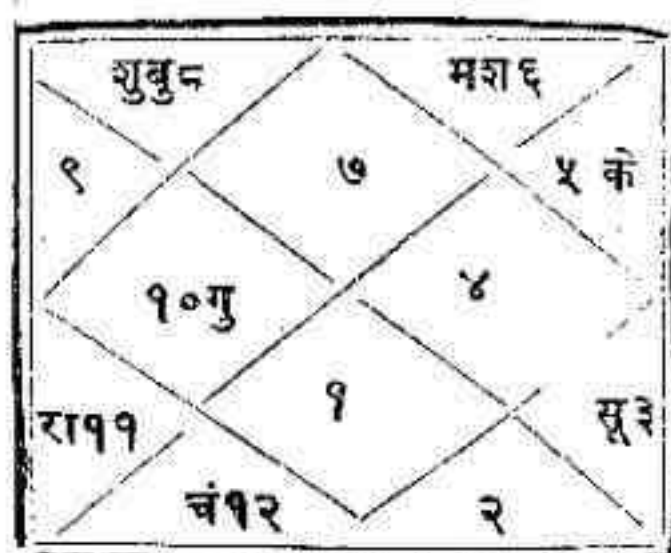 शुबु८ मश६
९ ७ ५ के
१०गु ४
रा११ १ सू३
चं१२ २